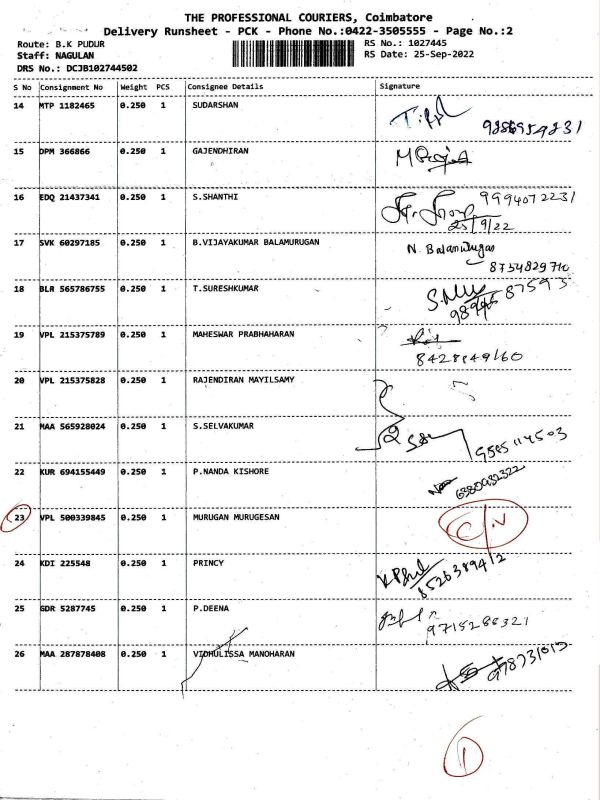 THE PROFESSIONAL COURIERS, Coimbatore
Delivery Runsheet - PCK - Phone No.:0422-3505555 - Page No.:2
Route: B.K PUDUR RS No.: 1027445
Staff: NAGULAN RS Date: 25-Sep-2022
DRS No.: DCJB102744502
S No Consignment No Weight PCS Consignee Details Signature
14 MTP 1182465 0.250 1 SUDARSHAN
15 DPM 366866 0.250 1 GAJENDHIRAN
16 EDQ 21437341 0.250 1 S.SHANTHI 9994072231
25/9/22
17 SVK 60297185 0.250 1 B.VIJAYAKUMAR BALAMURUGAN N. Balamurugan
8754829710
18 BLR 565786755 0.250 1 T.SURESHKUMAR
19 VPL 215375789 0.250 1 MAHESWAR PRABHAHARAN
20 VPL 215375828 0.250 1 RAJENDIRAN MAYILSAMY
21 MAA 565928024 0.250 1 S.SELVAKUMAR
22 KUR 694155449 0.250 1 P.NANDA KISHORE
6380932322
23 VPL 500339845 0.250 1 MURUGAN MURUGESAN
24 KDI 225548 0.250 1 PRINCY
8526389412
25 GDR 5287745 0.250 1 P.DEENA
9715286321
26 MAA 287878408 0.250 1 VIDHULISSA MANOHARAN
1